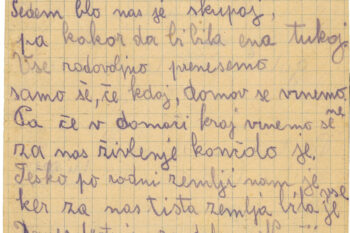 Sedem blo nas je skupaj,
pa kakor da bi bila ena tukaj.
Vse radovoljno prenesemo
samo še, če kdaj, domov se vrnemo.
Pa če v domači kraj vrnemo se ne
za nas živlenje končalo je.
Teško po rodni zemlji nam je
ker za nas tista zemlja bla je vse